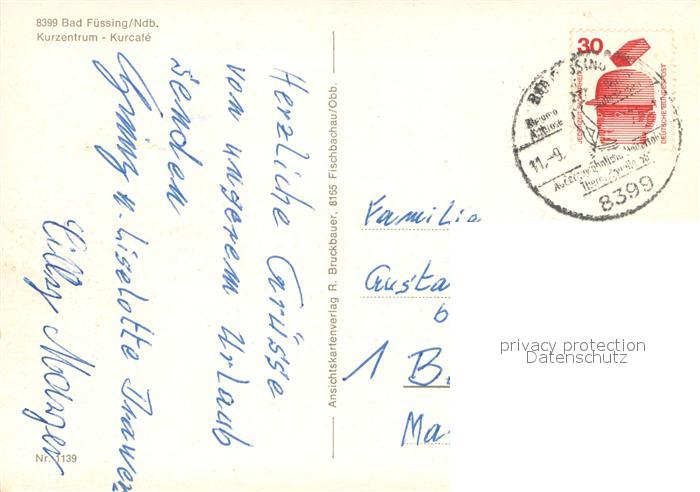 8399 Bad Füssing/Ndb.
Kurzentrum - Kurcafé
Herzliche Grüsse
von unserem Urlaub
senden
u. Liselotte
Nr. 1139
Ansichtskartenverlag R. Bruckbauer, 8165 Fischbachau/Obb.
30
DEUTSCHE BUNDESPOST
BAD FÜSSING
11.-9.
8399
Familie
Gusta
6
1 B.
Ma
privacy protection
Datenschutz